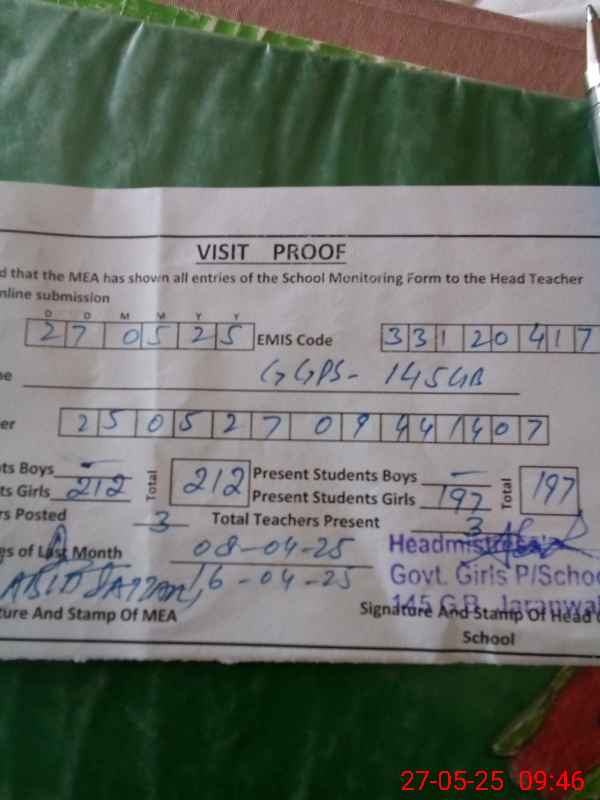 VISIT PROOF
d that the MEA has shown all entries of the School Monitoring Form to the Head Teacher
nline submission
D D M M Y Y
27 05 25 EMIS Code 33120417
e GGPS- 145GB
er 25052709441407
ts Boys - Total 212 Present Students Boys - Total 197
ts Girls 212 Present Students Girls 197
rs Posted 3 Total Teachers Present 3
es of Last Month 08-04-25
16-04-25
Headmistress
Govt. Girls P/Schoo
145 G.B. Jaranwal
ture And Stamp Of MEA Signature And Stamp Of Head
School
27-05-25 09:46